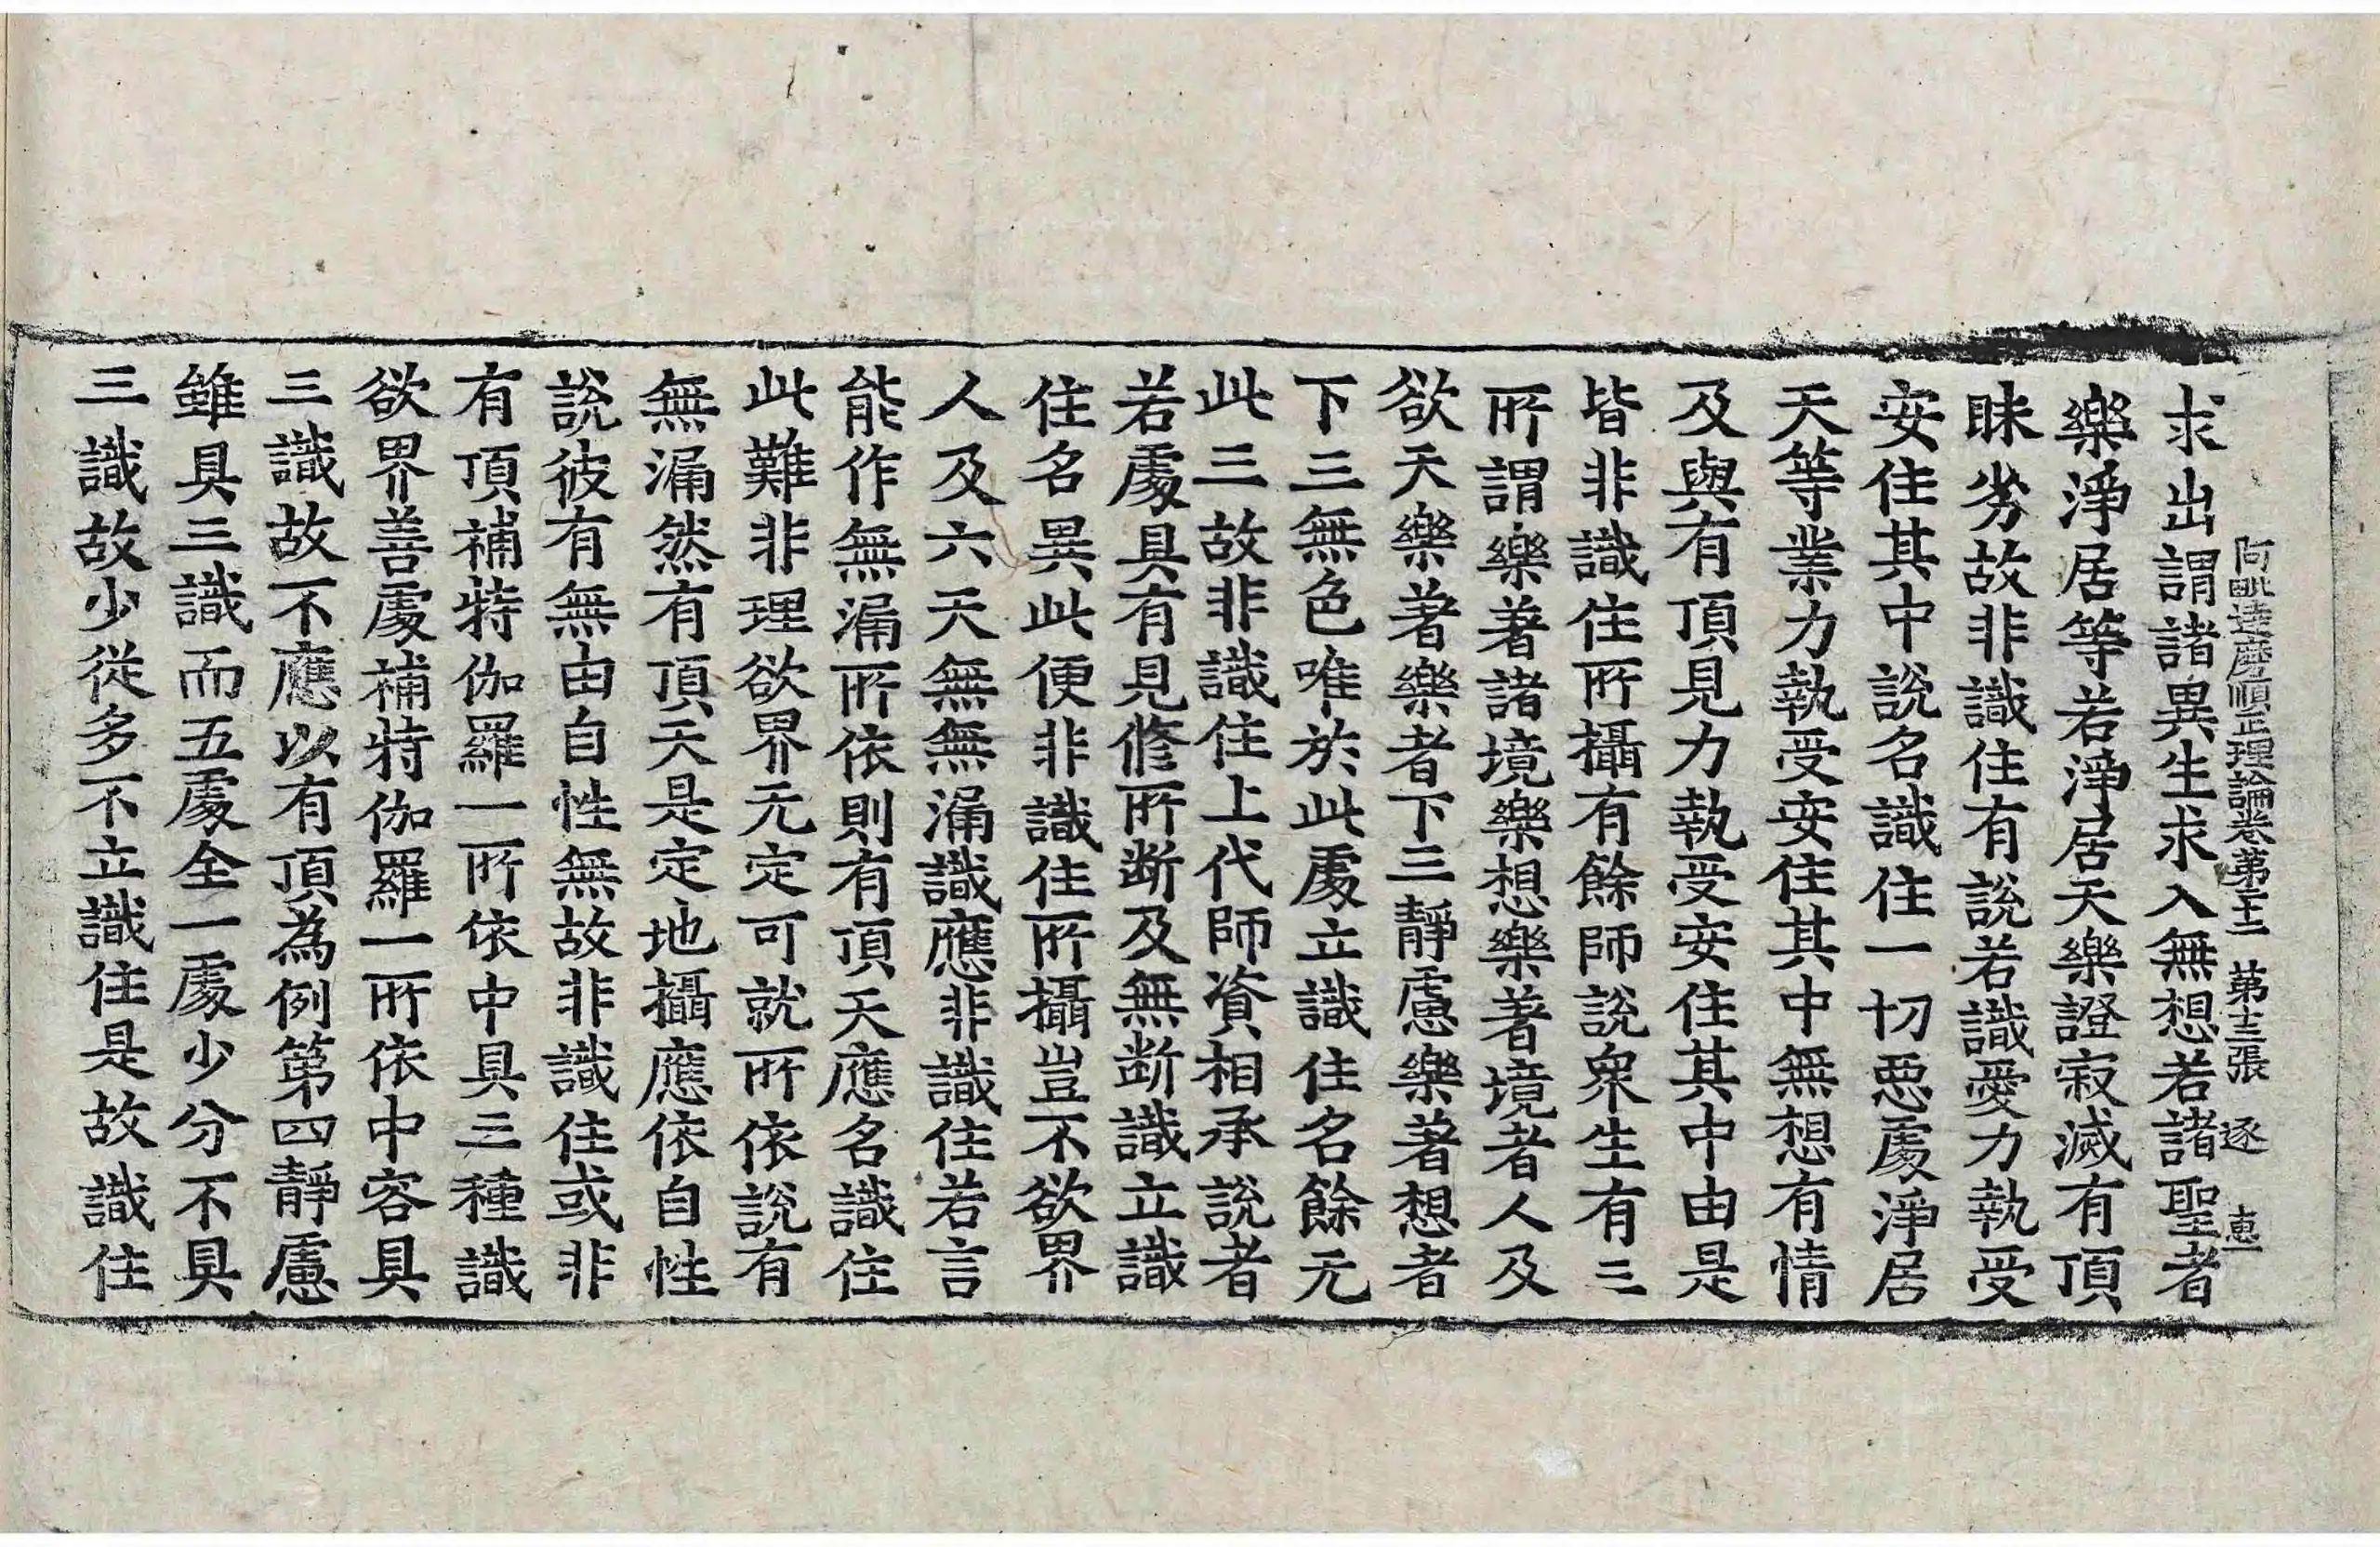 阿毗達磨順正理論卷第二十二　第十三張　逐　惠一
求出謂諸異生求入無想若諸聖者
樂淨居等若淨居天樂證寂滅有頂
昧劣故非識住有說若識愛力執受
安住其中說名識住一切惡處淨居
天等業力執受安住其中無想有情
及與有頂見力執受安住其中由是
皆非識住所攝有餘師說衆生有三
所謂樂著諸境樂想樂著境者人及
欲天樂著樂者下三靜慮樂著想者
下三無色唯於此處立識住名餘无
此三故非識住上代師資相承說者
若處具有見修所断及無断識立識
住名異此便非識住所攝豈不欲界
人及六天無無漏識應非識住若言
能作無漏所依則有頂天應名識住
此難非理欲界无定可就所依說有
無漏然有頂天是定地攝應依自性
說彼有無由自性無故非識住或非
有頂補特伽羅一所依中具三種識
欲界善處補特伽羅一所依中容具
三識故不應以有頂為例第四靜慮
雖具三識而五處全一處少分不具
三識故少從多不立識住是故識住